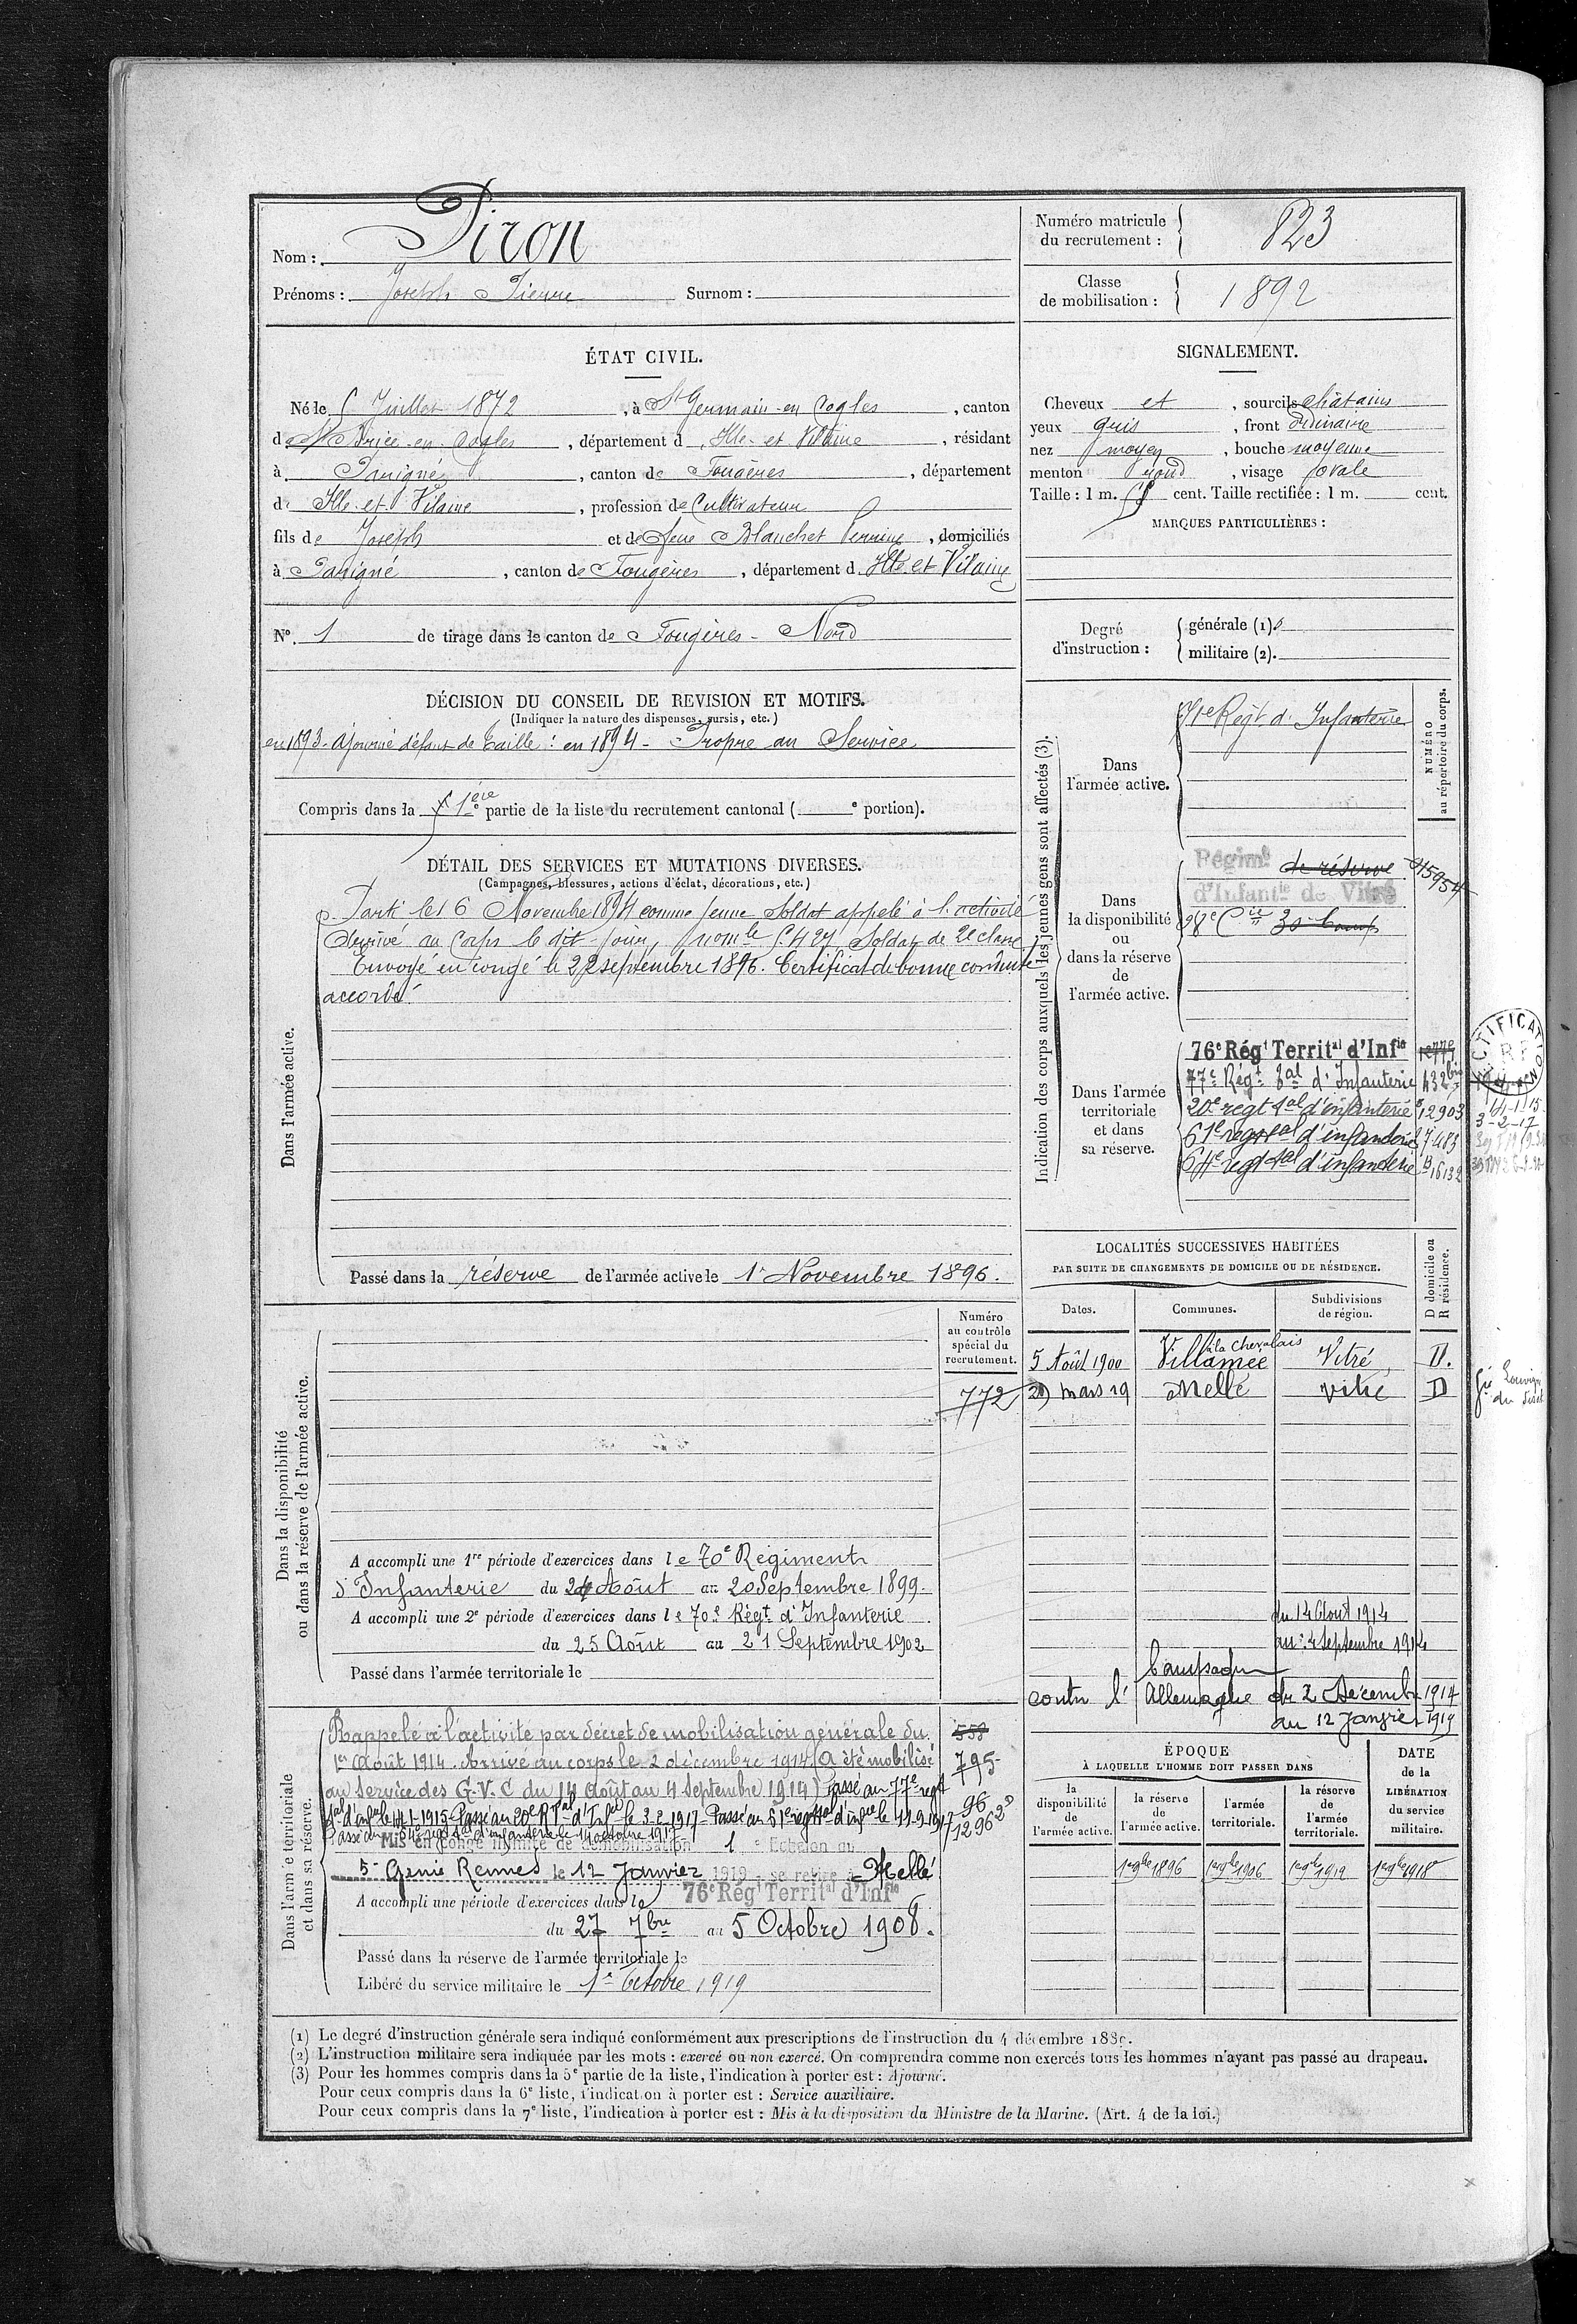 Nom : Piron
Prénoms : Joseph Pierre Surnom :
Numéro matricule du recrutement : 823
Classe de mobilisation : 1892
ÉTAT CIVIL.
Né le 5 Juillet 1872, à St Germain-en Cogles, canton
de St Brice-en-Cogles, département d Ille-et-Vilaine, résidant
à Parigné, canton de Fougères, département
d Ille-et-Vilaine, profession de Cultivateur
fils de Joseph et de feue Blanchet Perrine, domiciliés
à Parigné, canton de Fougères, département d Ille et Vilaine
N° 1 de tirage dans le canton de Fougères-Nord
SIGNALEMENT.
Cheveux et, sourcils châtains
yeux gris, front ordinaire
nez moyen, bouche moyenne
menton rond, visage ovale
Taille : 1 m. cent. Taille rectifiée : 1 m. cent.
MARQUES PARTICULIÈRES :
Degré d'instruction :
générale (1)
militaire (2).
DÉCISION DU CONSEIL DE REVISION ET MOTIFS.
(Indiquer la nature des dispenses, sursis, etc.)
en 1893-Ajourné défaut de taille : en 1894-Propre au Service
Compris dans la 1ère partie de la liste du recrutement cantonal ( e portion).
DÉTAIL DES SERVICES ET MUTATIONS DIVERSES.
(Campagnes, blessures, actions d'éclat, décorations, etc.)
Dans l'armée active.
Parti le 16 Novembre 1894 comme jeune Soldat appelé à l'activité
Arrivé au Corps le dit jour, n° mle Soldat de 2e classe
Envoyé en congé le 22 septembre 1896. Certificat de bonne conduite
accordé.
Passé dans la réserve de l'armée active le 1er Novembre 1896.
Indication des corps auxquels les jeunes gens sont affectés (3).
NUMÉRO au répertoire du corps.
Dans l'armée active.
Regt d'Infanterie
Dans la disponibilité ou dans la réserve de l'armée active.
Régimt de réserve
d'Infantie de Vitré
28e Cie
Dans l'armée territoriale et dans sa réserve.
76e Régt Territal d'Infie
77e Régt tal d'Infanterie 432 bis
20e regt tal d'infanterie 12903
61e regt tal d'infanterie 7483
64e regt tal d'infanterie B 16132
14-1-15
3-2-17
LOCALITÉS SUCCESSIVES HABITÉES
PAR SUITE DE CHANGEMENTS DE DOMICILE OU DE RÉSIDENCE.
Dates. Communes. Subdivisions de région. D domicile ou R résidence.
5 Août 1900 Villamée à la Chevalais Vitré D.
29 mars 19 Mellé Vitré D
du 14 Août 1914
au 4 septembre 1914
Campagne
contre l'Allemagne du 2 Décembre 1914
au 12 Janvier 1919
Dans la disponibilité ou dans la réserve de l'armée active.
Numéro au contrôle spécial du recrutement.
772
A accompli une 1re période d'exercices dans le 70e Régiment
d'Infanterie du 24 Août au 20 Septembre 1899.
A accompli une 2e période d'exercices dans le 70e Régt d'Infanterie
du 25 Août au 21 Septembre 1902
Passé dans l'armée territoriale le
Dans l'armée territoriale et dans sa réserve.
Rappelé à l'activité par décret de mobilisation générale du
1er Août 1914. Arrivé au corps le 2 décembre 1914 (A été mobilisé
au service des G.V.C du 14 août au 4 septembre 1914) passé au 77e regt
tal d'infie le 14-1-1915-Passé au 20e R Tal d'Infie le 3-2-1917-Passé au 61e regt tal d'infie le 11-9-1917
Passé au 64e regt tal d'infanterie le 14 octobre 1917-
Mis en congé illimité de démobilisation 1 e Echelon au
5e Génie Rennes le 12 Janvier 1919 se retire à Mellé
558
795
96
12962
A accompli une période d'exercices dans le 76e Régt Territal d'Infie
du 27 7bre au 5 Octobre 1908.
Passé dans la réserve de l'armée territoriale le
Libéré du service militaire le 1er Octobre 1919
ÉPOQUE
À LAQUELLE L'HOMME DOIT PASSER DANS
la disponibilité de l'armée active. la réserve de l'armée active. l'armée territoriale. la réserve de l'armée territoriale.
DATE de la LIBÉRATION du service militaire.
1er 9bre 1896 1er 9bre 1906 1er 9bre 1912 1er 9bre 1918
(1) Le degré d'instruction générale sera indiqué conformément aux prescriptions de l'instruction du 4 décembre 1889.
(2) L'instruction militaire sera indiquée par les mots : exercé ou non exercé. On comprendra comme non exercés tous les hommes n'ayant pas passé au drapeau.
(3) Pour les hommes compris dans la 5e partie de la liste, l'indication à porter est : Ajourné.
Pour ceux compris dans la 6e liste, l'indication à porter est : Service auxiliaire.
Pour ceux compris dans la 7e liste, l'indication à porter est : Mis à la disposition du Ministre de la Marine. (Art. 4 de la loi.)